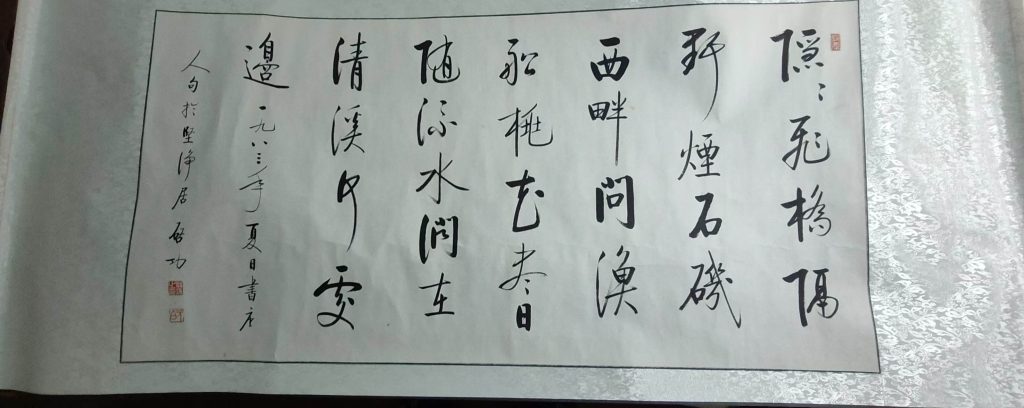 隱〻飛橋隔
野煙石磯
西畔問漁
船桃花盡日
隨流水洞在
清溪何處
邊 一九八三年夏日書唐
人句於堅淨居 啟功